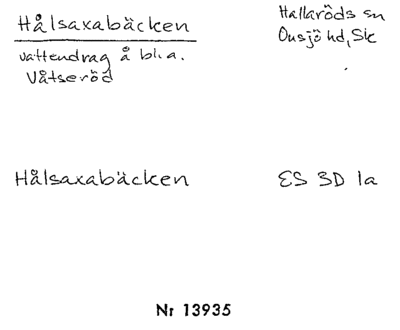 Hålsaxabäcken
Hallaröds sn
Onsjö hd, Sk
vattendrag å bl.a.
Våtseröd
Hålsaxabäcken
ES 3D 1a
Nr 13935